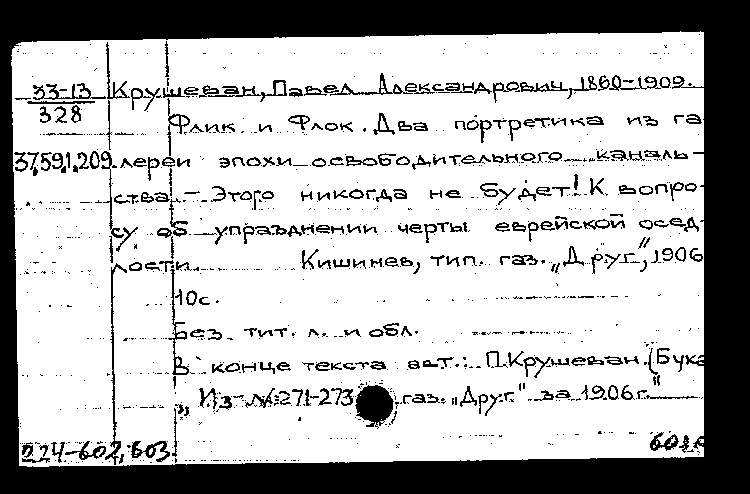 33-13 Крушеван, Павел Александрович, 1860-1909.
328
Флик и Флок. Два портретика из га
37.59.1.209. лереи эпохи освободительного каналь-
ства. - Этого никогда не будет! К вопро-
су об упразднении черты еврейской осед-
лости. Кишинев, тип. газ. „Друг", 1906
10с.
Без тит. л. и обл.
В конце текста авт.: П.Крушеван. (Бука
„Из №271-273 газ. „Друг" за 1906г."
224-602, 603.